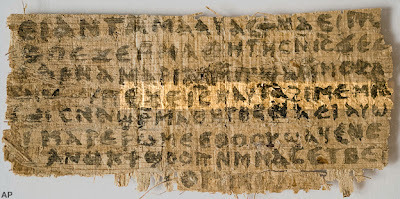 ⲉⲓ ⲁⲛ ⲧⲁⲙⲁⲁⲩ ⲁⲥϯ ⲛⲁⲉⲓ ⲡⲱ
ⲡⲉϫⲉ ⲙⲙⲁⲑⲏⲧⲏⲥ ⲛⲓⲥ ϫⲉ ⲥ
ⲁⲣⲛⲁ ⲙⲁⲣⲓⲁⲙ ⲙⲡϣⲁ ⲙⲙⲟⲥ
ⲡⲉϫⲉ ⲓⲥ ⲛⲁⲩ ⲧⲁϩⲓⲙⲉ ⲙⲛ
ⲥⲛⲁϣⲣⲙⲁⲑⲏⲧⲏⲥ ⲛⲁⲉⲓ ⲁⲩⲱ
ⲙⲁⲣⲉⲣⲱⲙⲉ ⲉⲑⲟⲟⲩ ϣⲁϥⲉ ⲛⲉ
ⲁⲛⲟⲕ ϯϣⲟⲟⲡ ⲛⲙⲙⲁⲥ ⲉⲧⲃⲉ
AP